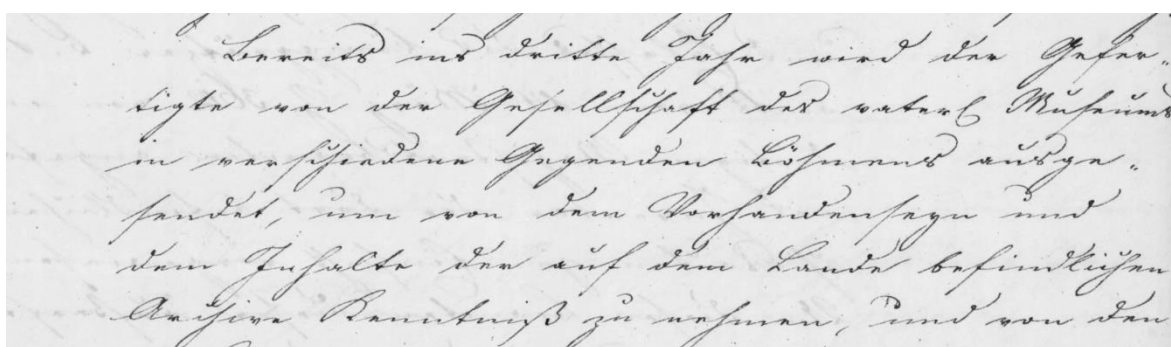 Bereits ins dritte Jahr wird der Gefer-
tigte von der Gesellschaft des vaterl Museums
in verschiedene Gegenden Böhmens ausge-
sendet, um von dem Vorhandenseyn und
dem Inhalte der auf dem Lande befindlichen
Archive Kenntniß zu nehmen, und von den